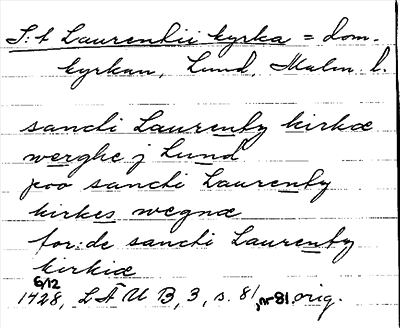 S:t Laurentii kyrka = dom-
kyrkan, Lund, Malm. l.
sancti Laurentz kirkæ
werghe j Lund
poo sancti Laurentz
kirkes wegnæ
for:de sancti Laurentz
kirkiæ
6/12
1428, LÄUB, 3, s. 81, nr 81 orig.